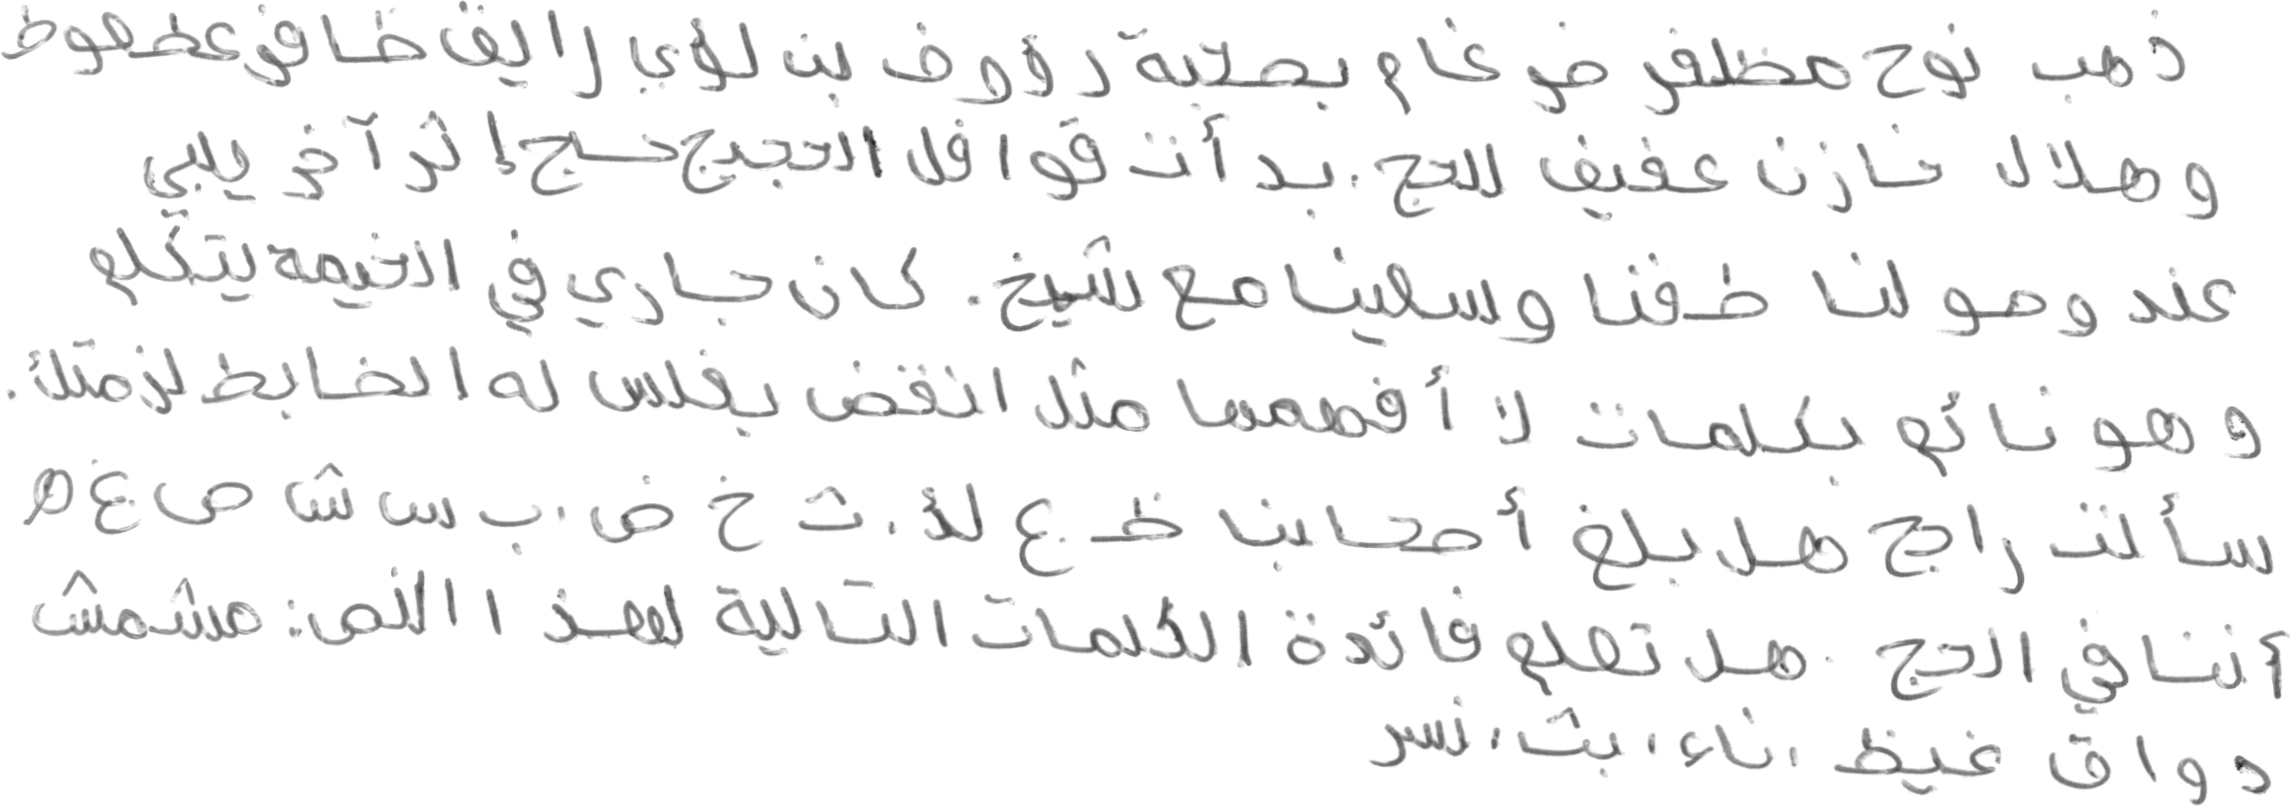 ذهب نوح مظفر ضرغام بصحبة رؤوف بن لؤي رايق ظافر عطعوط
وهلال خازن عفيف للحج. بدأت قوافل الحجيج حسج إثر آخر يلبي
عند وصولنا طفنا وسعينا مع شيخ. كان جاري في الخيمة يتكلم
وهو نائم بكلمات لا أفهمها مثل انقض يغلس له الضابط لزمتك.
سألت راجح هل بلغ أصحابنا ظ ع لؤ، ث خ ض، ب س ش ص غ ه
أننا في الحج. هل تعلم فائدة الكلمات التالية لهذا النص: مشمش
دواق غيظ، ناء، بث، نسر